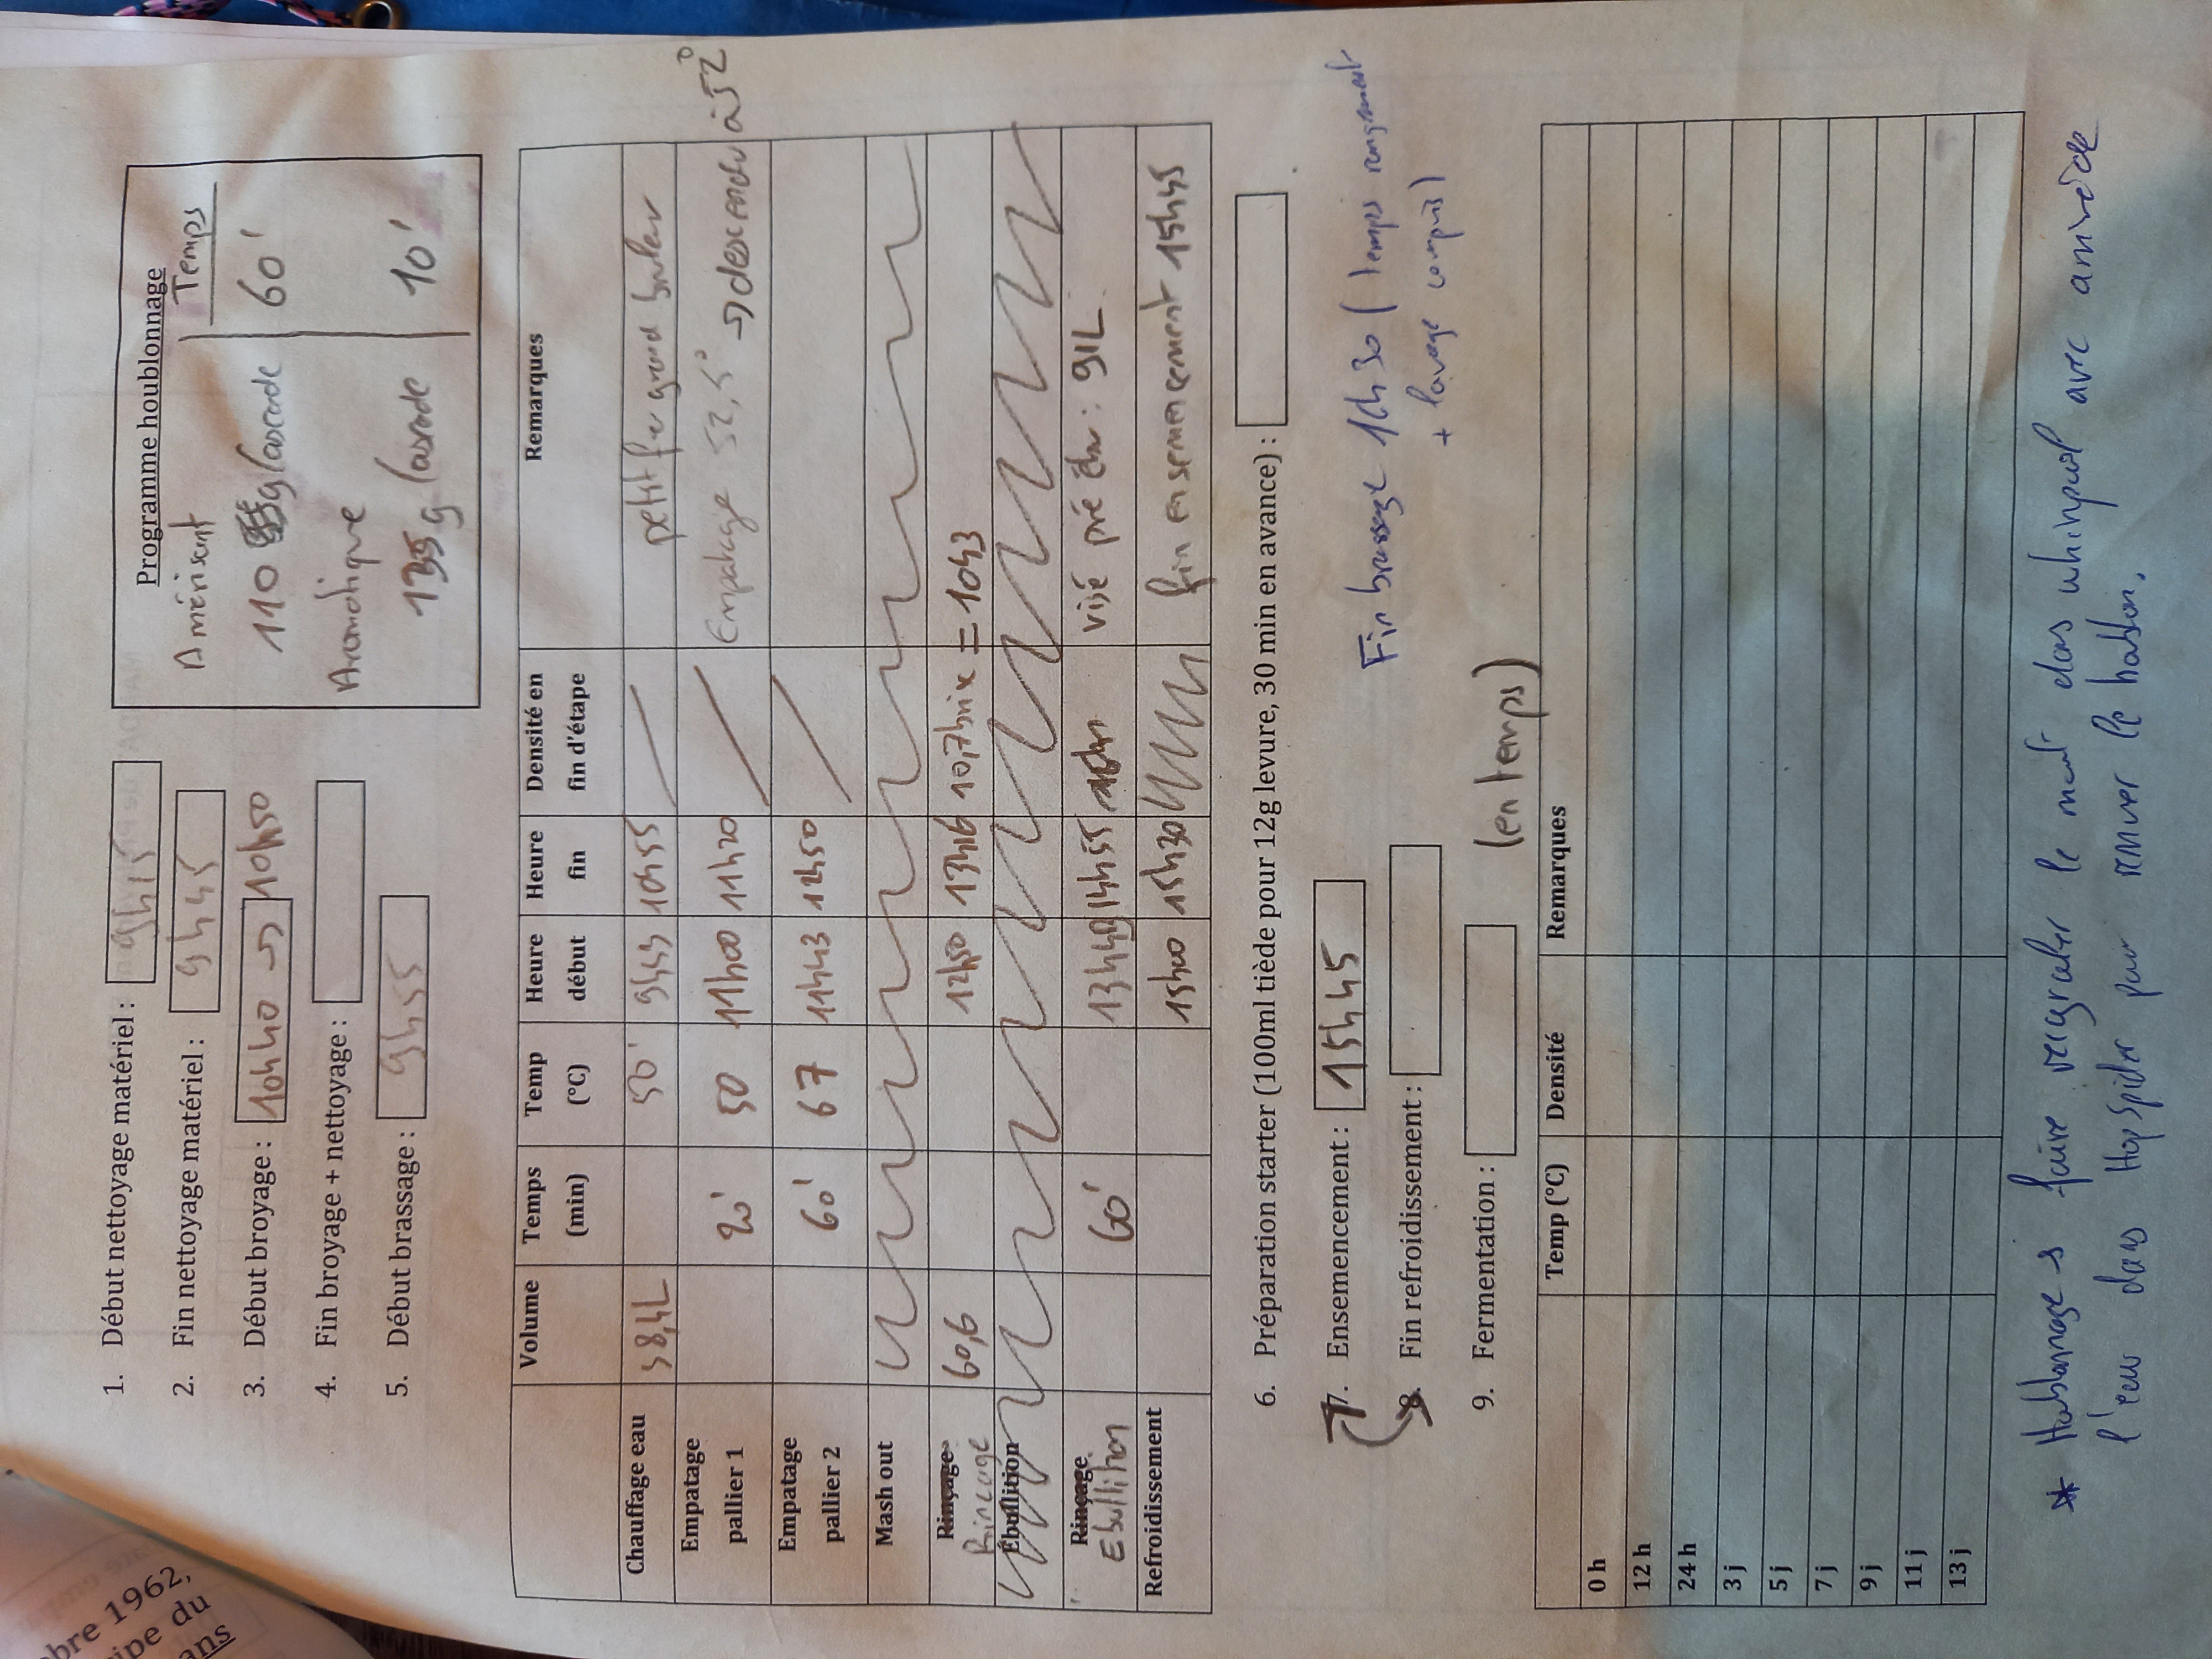 bre 1962,
ipe du
ans
1. Début nettoyage matériel : 9h15
2. Fin nettoyage matériel : 9h45
3. Début broyage : 10h40 → 10h50
4. Fin broyage + nettoyage :
5. Début brassage : 9h55
Programme houblonnage
Amérisant Temps
110 g Cascade 60'
Aromatique
135g Cascade 10'
Volume Temps (min) Temp (°C) Heure début Heure fin Densité en fin d'étape Remarques
Chauffage eau 58,4L 50° 10h55 petit feu grand bruleur
Empatage pallier 1 20' 50 11h00 11h20 Empatage 52,5° → descendu à 52°
Empatage pallier 2 60' 67 11h43 12h50
Mash out
Rinçage Rincage 60,6 12h50 13h16 10,7brix = 1043
Ébullition
Rinçage Ebullition 60' 14h55 visé pré ébu : 91L
Refroidissement 15h00 15h30 fin ensemencement 15h45
6. Préparation starter (100ml tiède pour 12g levure, 30 min en avance) :
7. Ensemencement : 15h45
8. Fin refroidissement :
Fin brassage 16h30 ( temps rangement
+ lavage compris)
9. Fermentation : (en temps)
Temp (°C) Densité Remarques
0 h
12 h
24 h
3 j
5 j
7 j
9 j
11 j
13 j
* Houblonnage → faire recirculer le mout dans whirpool avec arrivée de
l'eau dans HopSpider pour remuer le houblon.